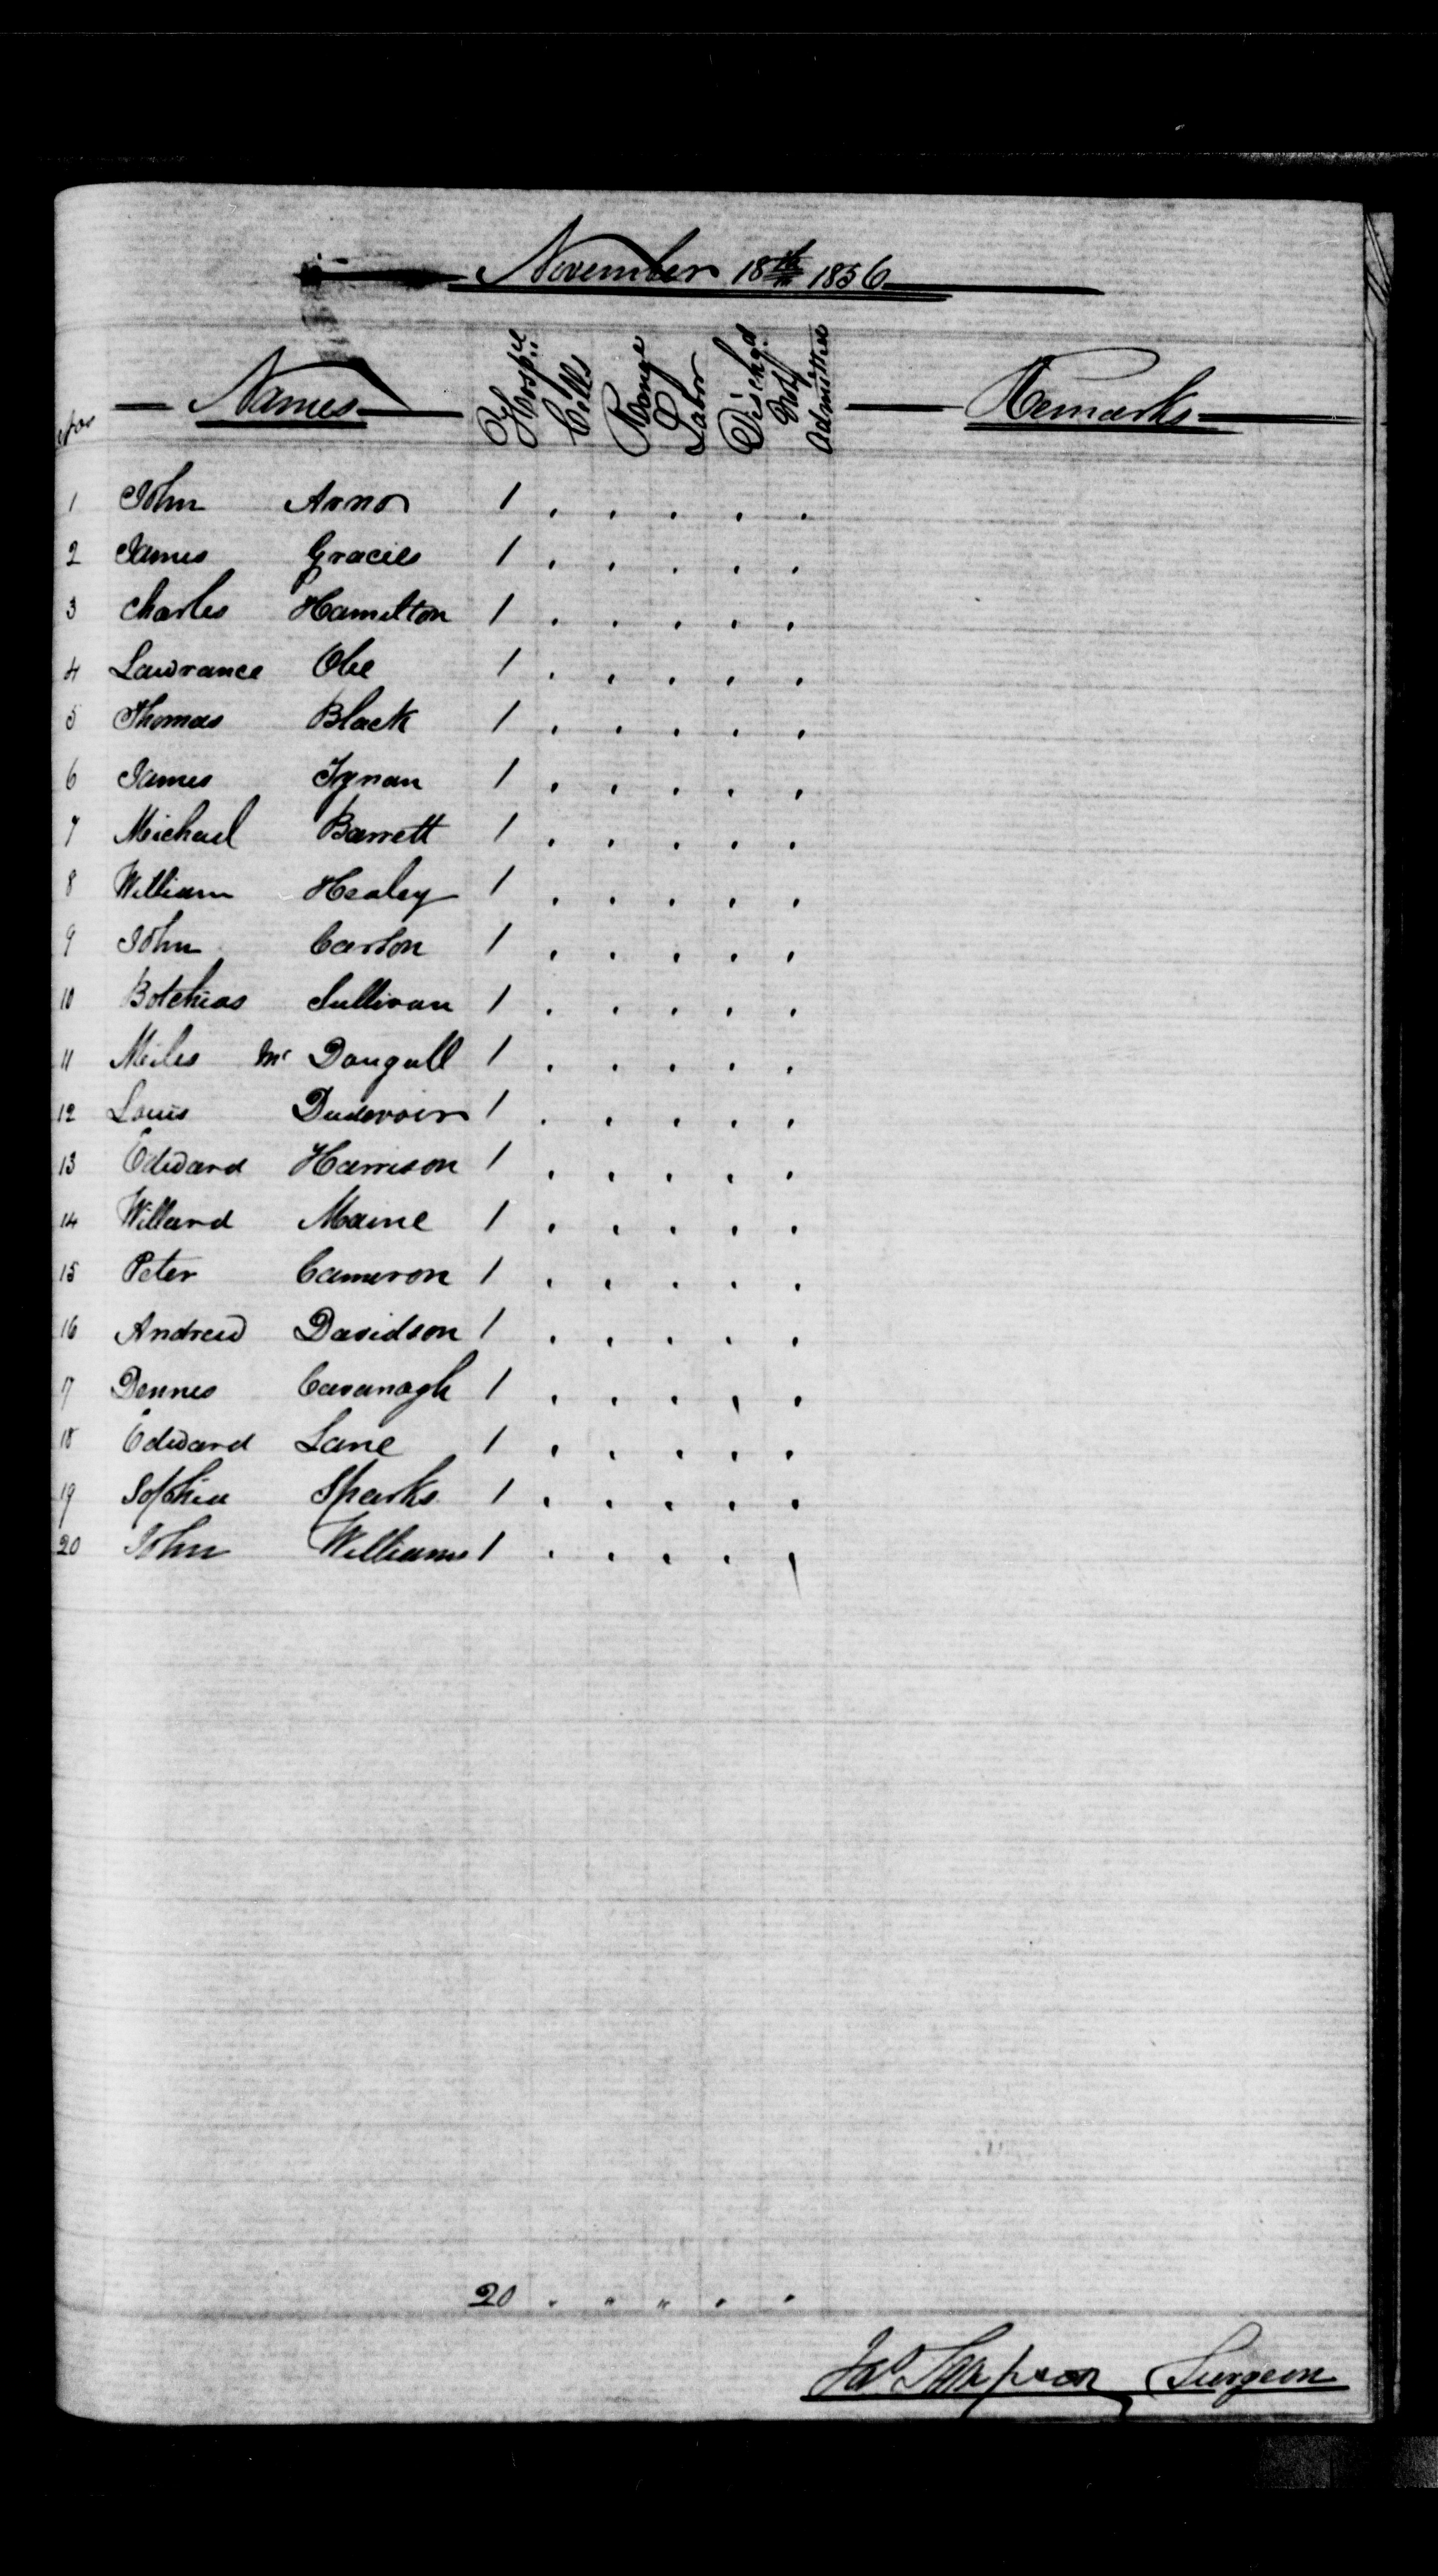 November 18th 1856
Nos Names Hospl. Cells Range Labor Dischgd Not Admitted Remarks
1 John Arno 1 . . . . .
2 James Gracies 1 . . . . .
3 Charles Hamilton 1 . . . . .
4 Lawrance Obe 1 . . . . .
5 Thomas Black 1 . . . . .
6 James Tynan 1 . . . . .
7 Michael Barrett 1 . . . . .
8 William Healey 1 . . . . .
9 John Carlon 1 . . . . .
10 Sullivan 1 . . . . .
11 Miles Mc Dougall 1 . . . . .
12 Louis Dudevoir 1 . . . . .
13 Edward Harrison 1 . . . . .
14 Willard Maine 1 . . . . .
15 Peter Cameron 1 . . . . .
16 Andrew Davidson 1 . . . . .
17 Dennis Cavanagh 1 . . . . .
18 Edward Lane 1 . . . . .
19 Sophia Sparks 1 . . . . .
20 John Williams 1 . . . . .
20 . " " . .
Jas Sampson Surgeon